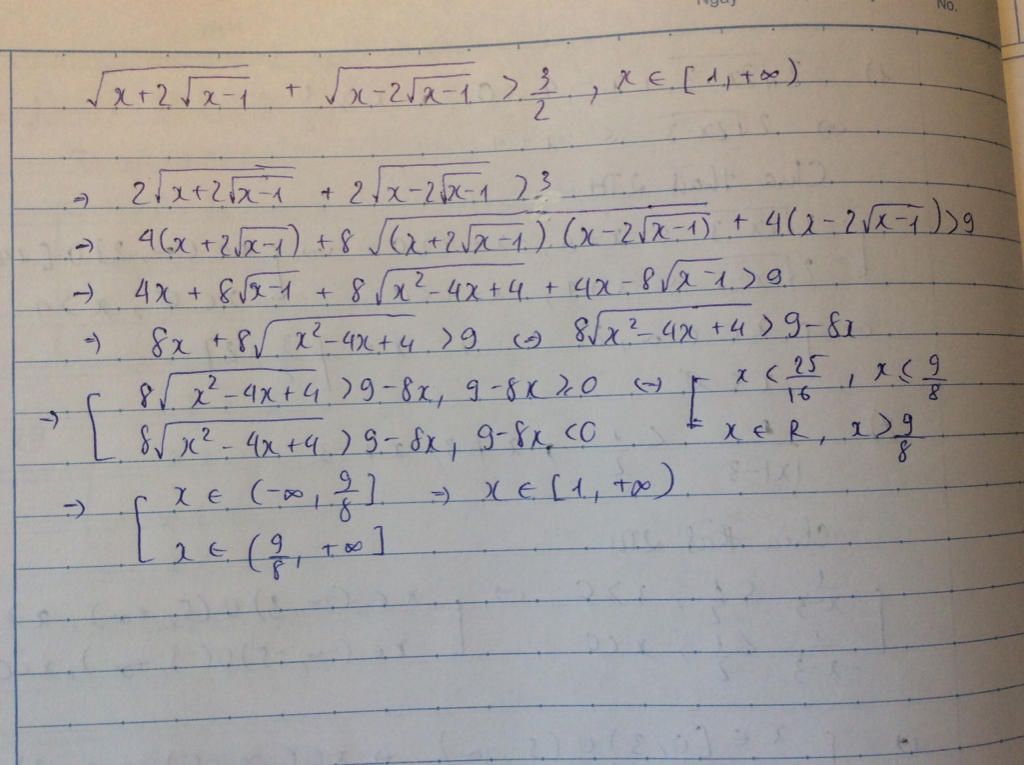 Ngày
No.
√(x+2√(x-1)) + √(x-2√(x-1)) > 3/2 , x ∈ [1, +∞)
⇒ 2√(x+2√(x-1)) + 2√(x-2√(x-1)) > 3
⇒ 4(x+2√(x-1)) + 8√((x+2√(x-1))(x-2√(x-1))) + 4(x-2√(x-1)) > 9
⇒ 4x + 8√(x-1) + 8√(x²-4x+4) + 4x - 8√(x-1) > 9
⇒ 8x + 8√(x²-4x+4) > 9 ⇔ 8√(x²-4x+4) > 9-8x
⇒ [ 8√(x²-4x+4) > 9-8x, 9-8x ≥ 0 ⇔ [ x < 25/16 , x ≤ 9/8
8√(x²-4x+4) > 9-8x, 9-8x < 0 x ∈ R, x > 9/8
⇒ [ x ∈ (-∞, 9/8] ⇒ x ∈ [1, +∞)
x ∈ (9/8, +∞]